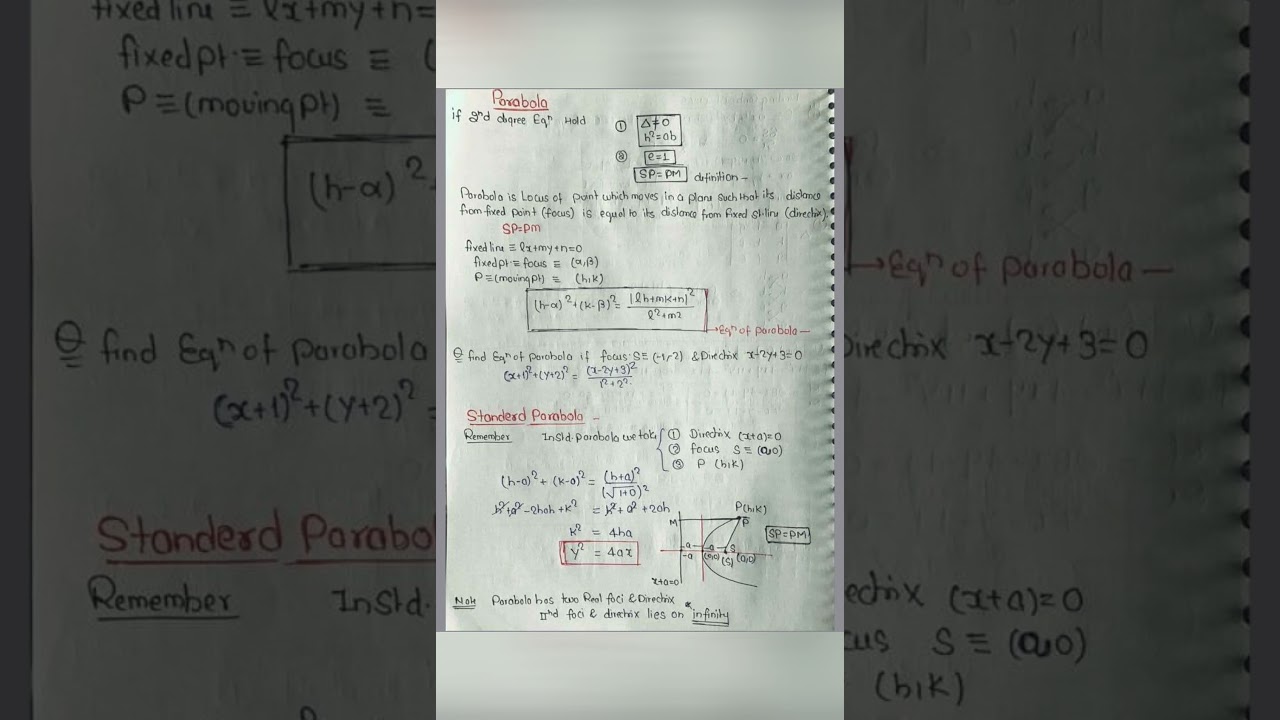 Parabola
if 2nd degree Eqn Hold
① Δ≠0
h²=ab
② e=1
SP=PM definition –
Parabola is Locus of point which moves in a plane such that its distance
from fixed point (focus) is equal to its distance from fixed st. line (directix).
SP=PM
fixed line ≡ lx+my+n=0
fixed pt. ≡ focus ≡ (α,β)
P ≡ (moving pt) ≡ (h,k)
(h-α)²+(k-β)² = |lh+mk+n|²/l²+m2
→ Eqn of parabola —
Q find Eqn of parabola if focus S≡ (-1,-2) & Directix x-2y+3=0
(x+1)²+(y+2)² = (x-2y+3)²/1²+2²
Standerd Parabola –
Remember In Std. Parabola we take { ① Directix (x+a)=0
② focus S ≡ (a,0)
③ P (h,k)
(h-a)² + (k-0)² = (h+a)²/(√1+0)²
h²+a²-2ah+k² = h²+a²+2ah
k² = 4ha
y² = 4ax
P(h,k)
M P
SP=PM
a a S
-a (0,0) (S) (a,0)
x+a=0
Note Parabola has two Real foci & Directix
IInd foci & directix lies on infinity
fixed line ≡ lx+my+n=
fixed pt. ≡ focus ≡ (
P ≡ (moving pt) ≡
(h-α)²
→ Eqn of parabola —
Q find Eqn of parabola
Directix x-2y+3=0
(x+1)²+(y+2)² =
Standerd Parabo
Remember In Std.
ectix (x+a)=0
cus S ≡ (a,0)
(h,k)